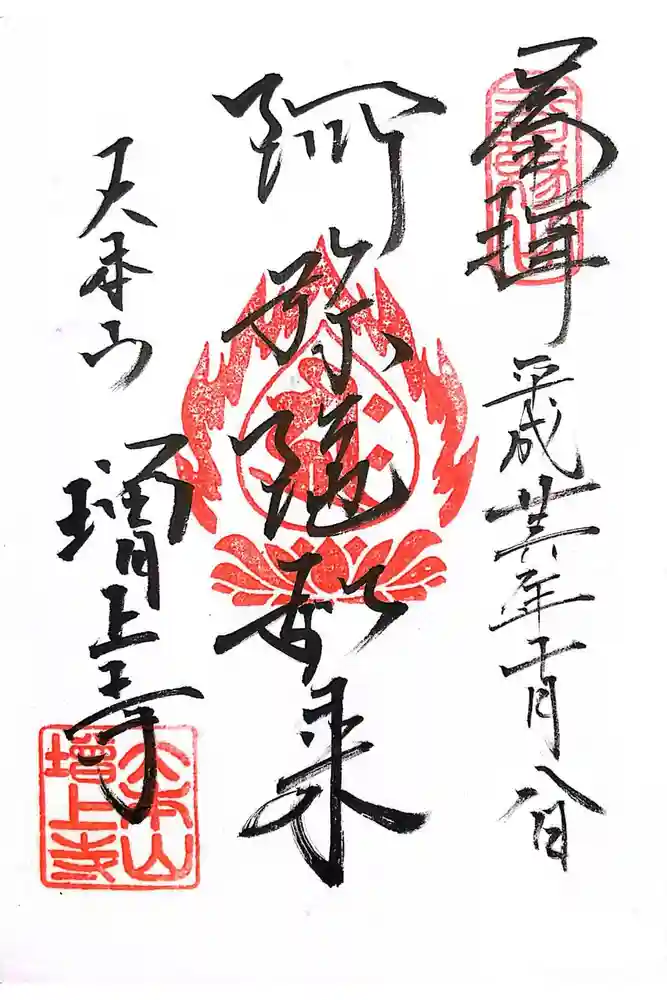 奉拝
三縁山
平成廿六年十一月八日
阿弥陀如来
大本山
増上寺
大本山
増上寺